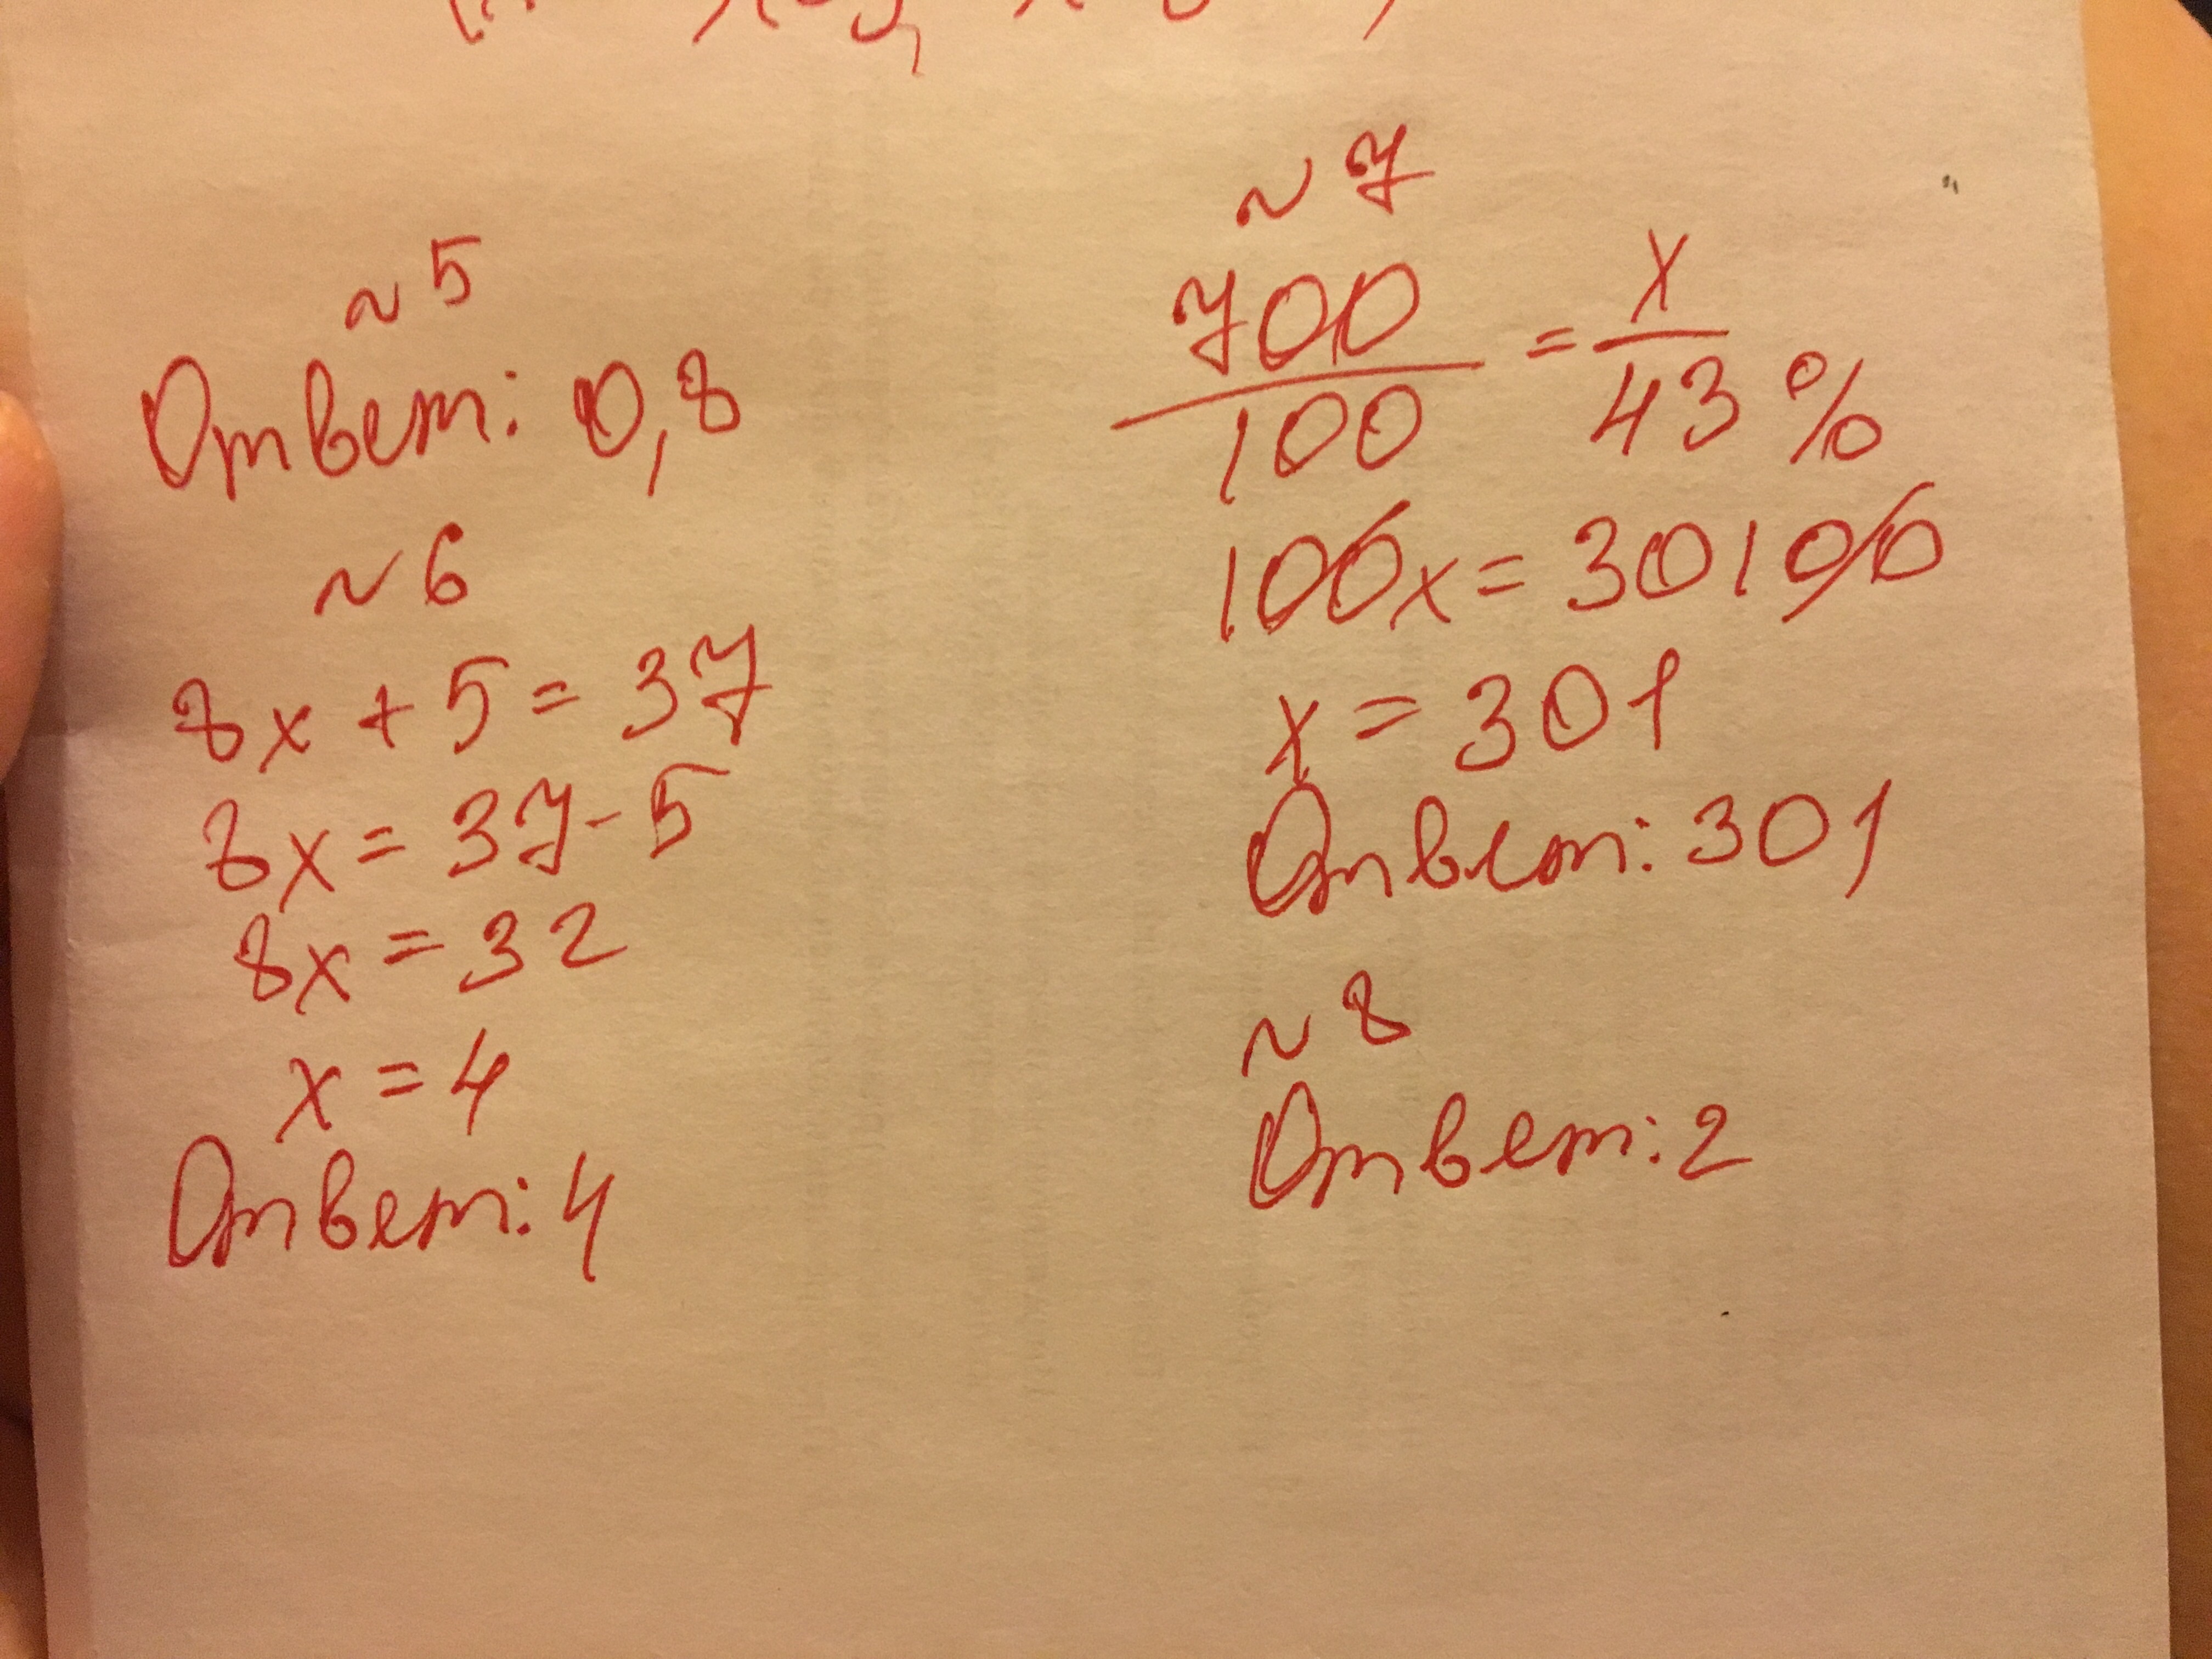 ~ 5
Ответ: 0,8
~ 6
8x + 5 = 37
8x = 37 - 5
8x = 32
x = 4
Ответ: 4
~ 7
700/100 = x/43 %
100x = 30100
x = 301
Ответ: 301
~ 8
Ответ: 2